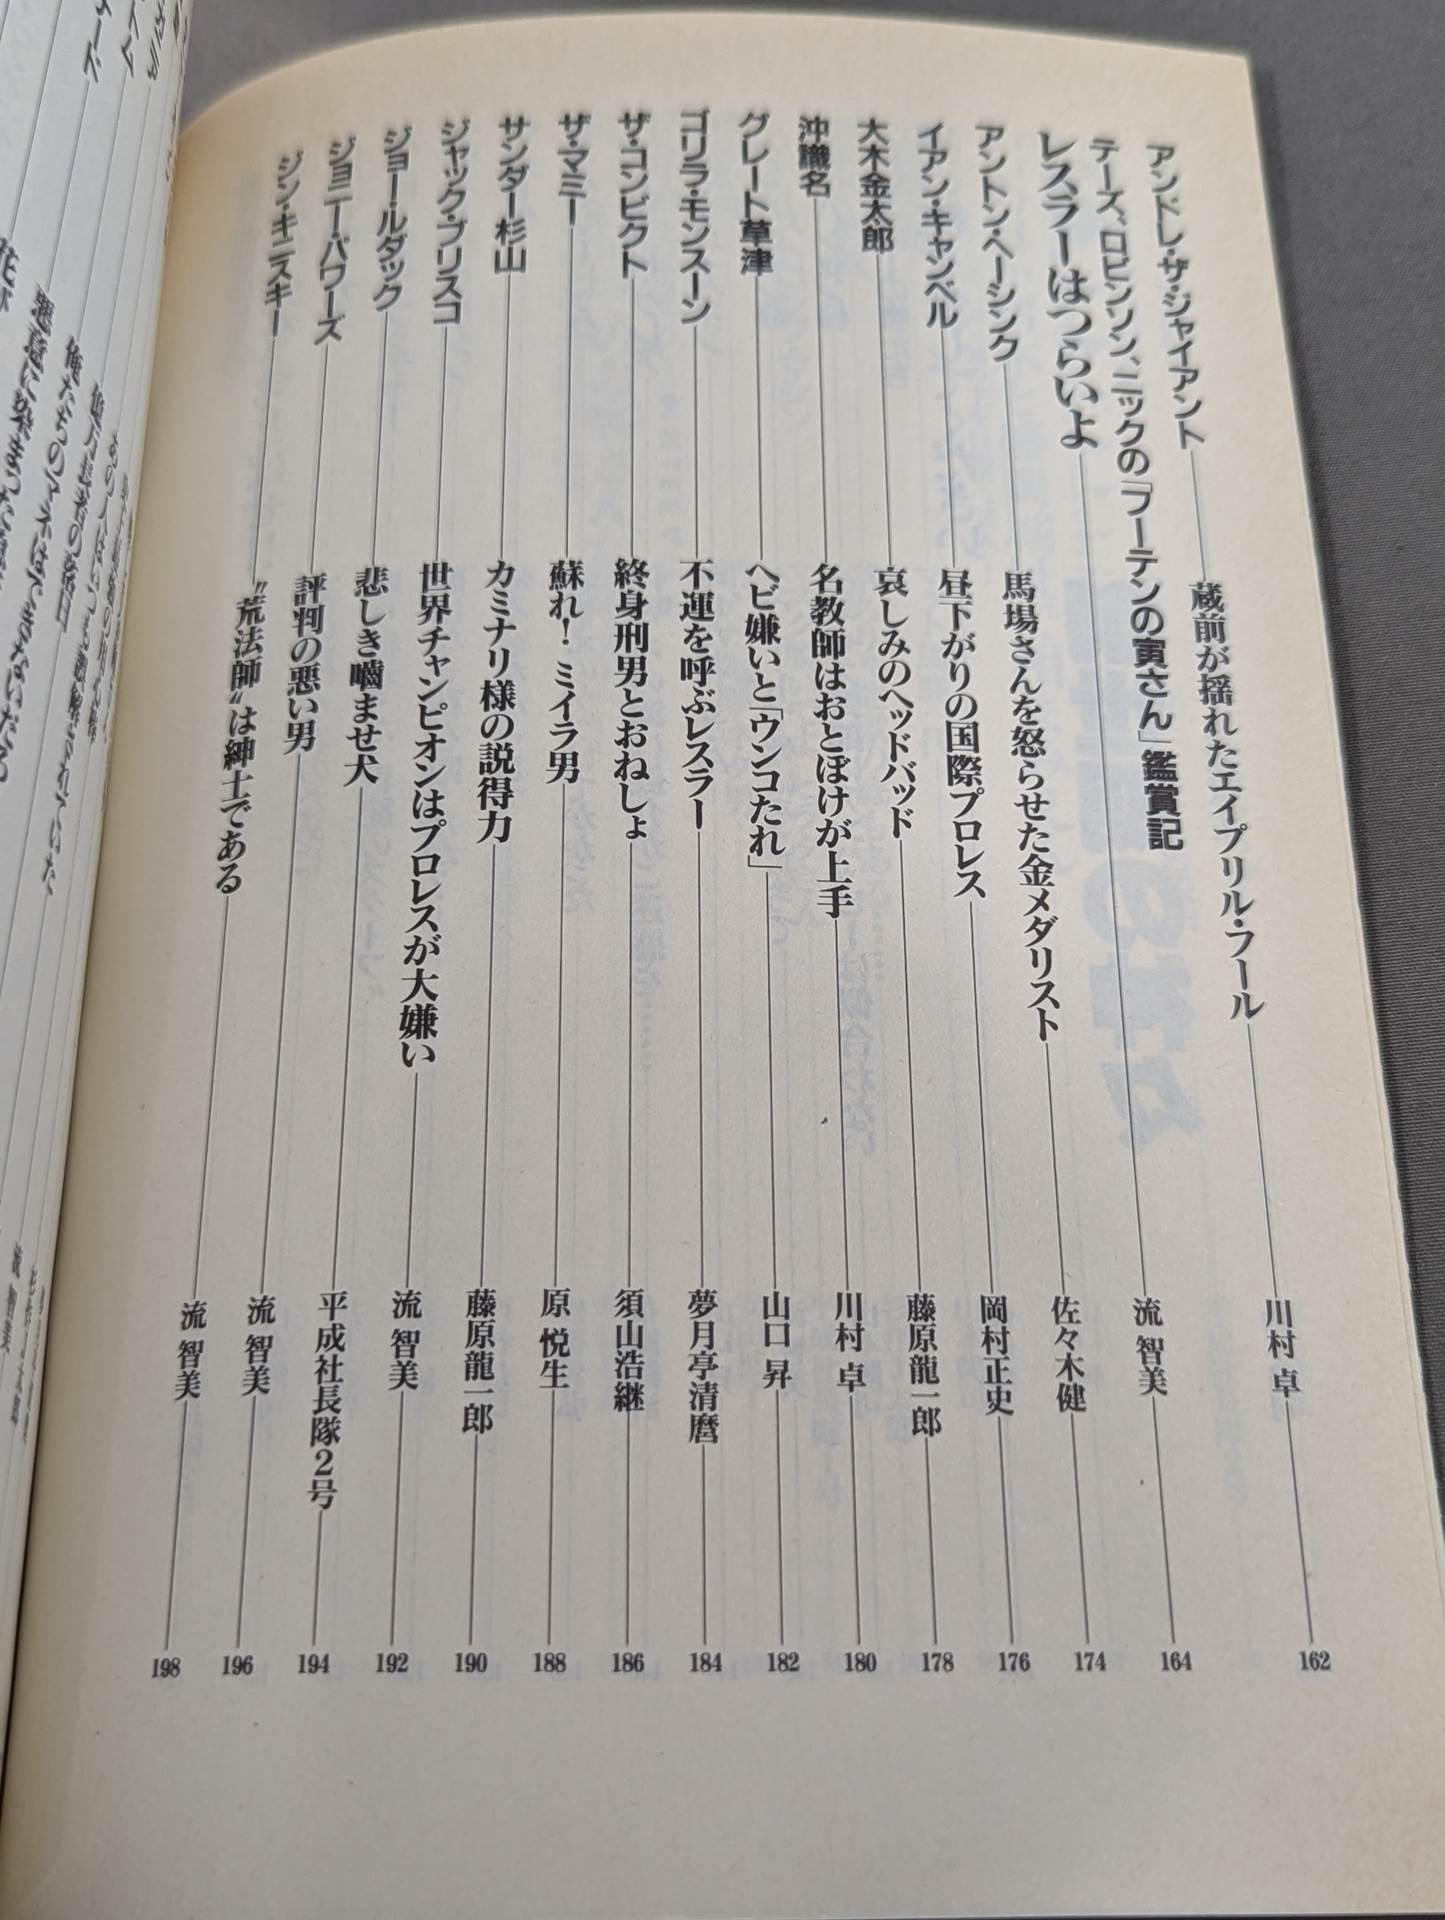 アンドレ・ザ・ジャイアント 蔵前が揺れたエイプリル・フール 川村 卓 162
テーズ、ロビンソン、ニックの「フーテンの寅さん」鑑賞記
レスラーはつらいよ 流 智美 164
アントン・ヘーシンク 馬場さんを怒らせた金メダリスト 佐々木健 174
イアン・キャンベル 昼下がりの国際プロレス 岡村正史 176
大木金太郎 哀しみのヘッドバッド 藤原龍一郎 178
沖識名 名教師はおとぼけが上手 川村 卓 180
グレート草津 ヘビ嫌いと「ウンコたれ」 山口 昇 182
ゴリラ・モンスーン 不運を呼ぶレスラー 夢月亭清麿 184
ザ・コンビクト 終身刑男とおねしょ 須山浩継 186
ザ・マミー 蘇れ！ミイラ男 原 悦生 188
サンダー杉山 カミナリ様の説得力 藤原龍一郎 190
ジャック・ブリスコ 世界チャンピオンはプロレスが大嫌い 流 智美 192
ジョー・ルダック 悲しき嚙ませ犬 平成社長隊2号 194
ジョニー・パワーズ 評判の悪い男 流 智美 196
ジン・キニスキー “荒法師”は紳士である 流 智美 198
俺たちのマネはできないだろ